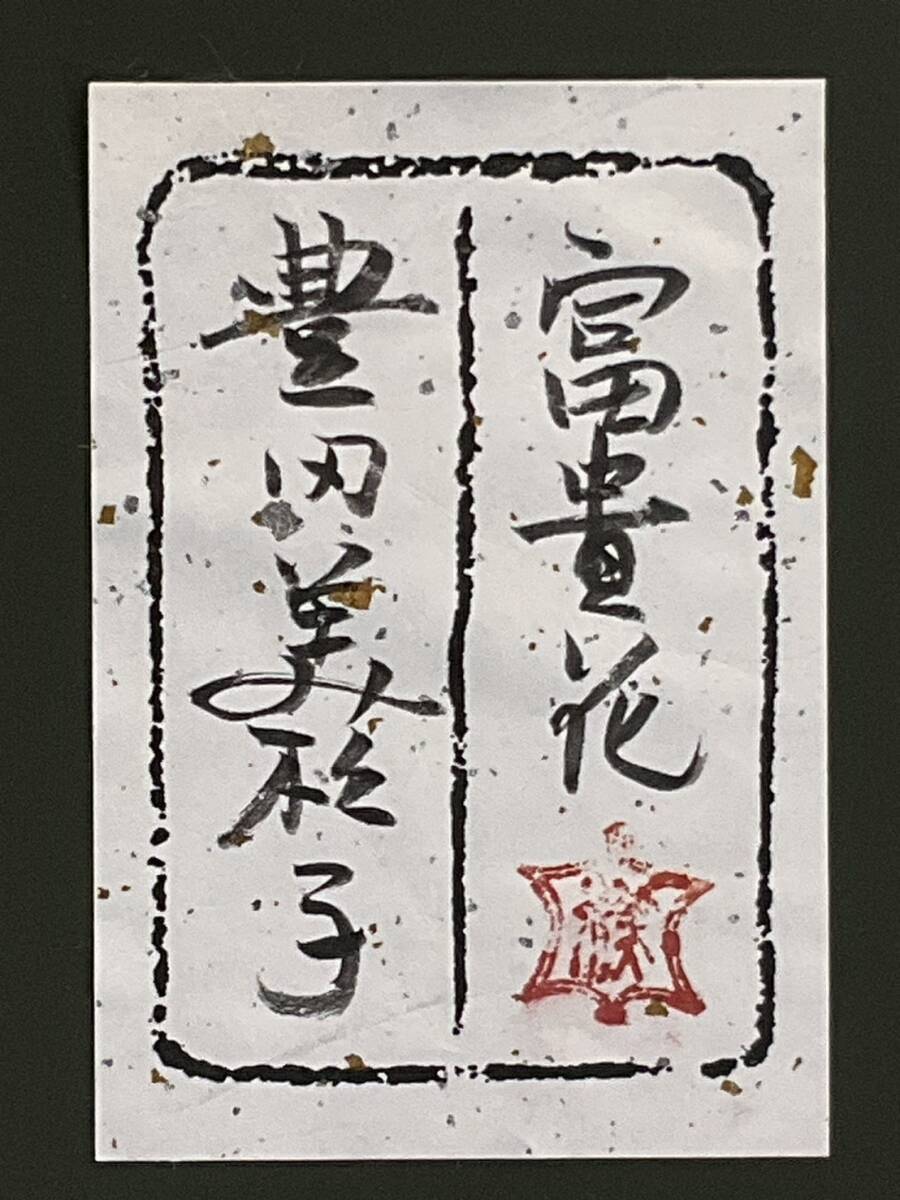 富貴花
豊田美於子